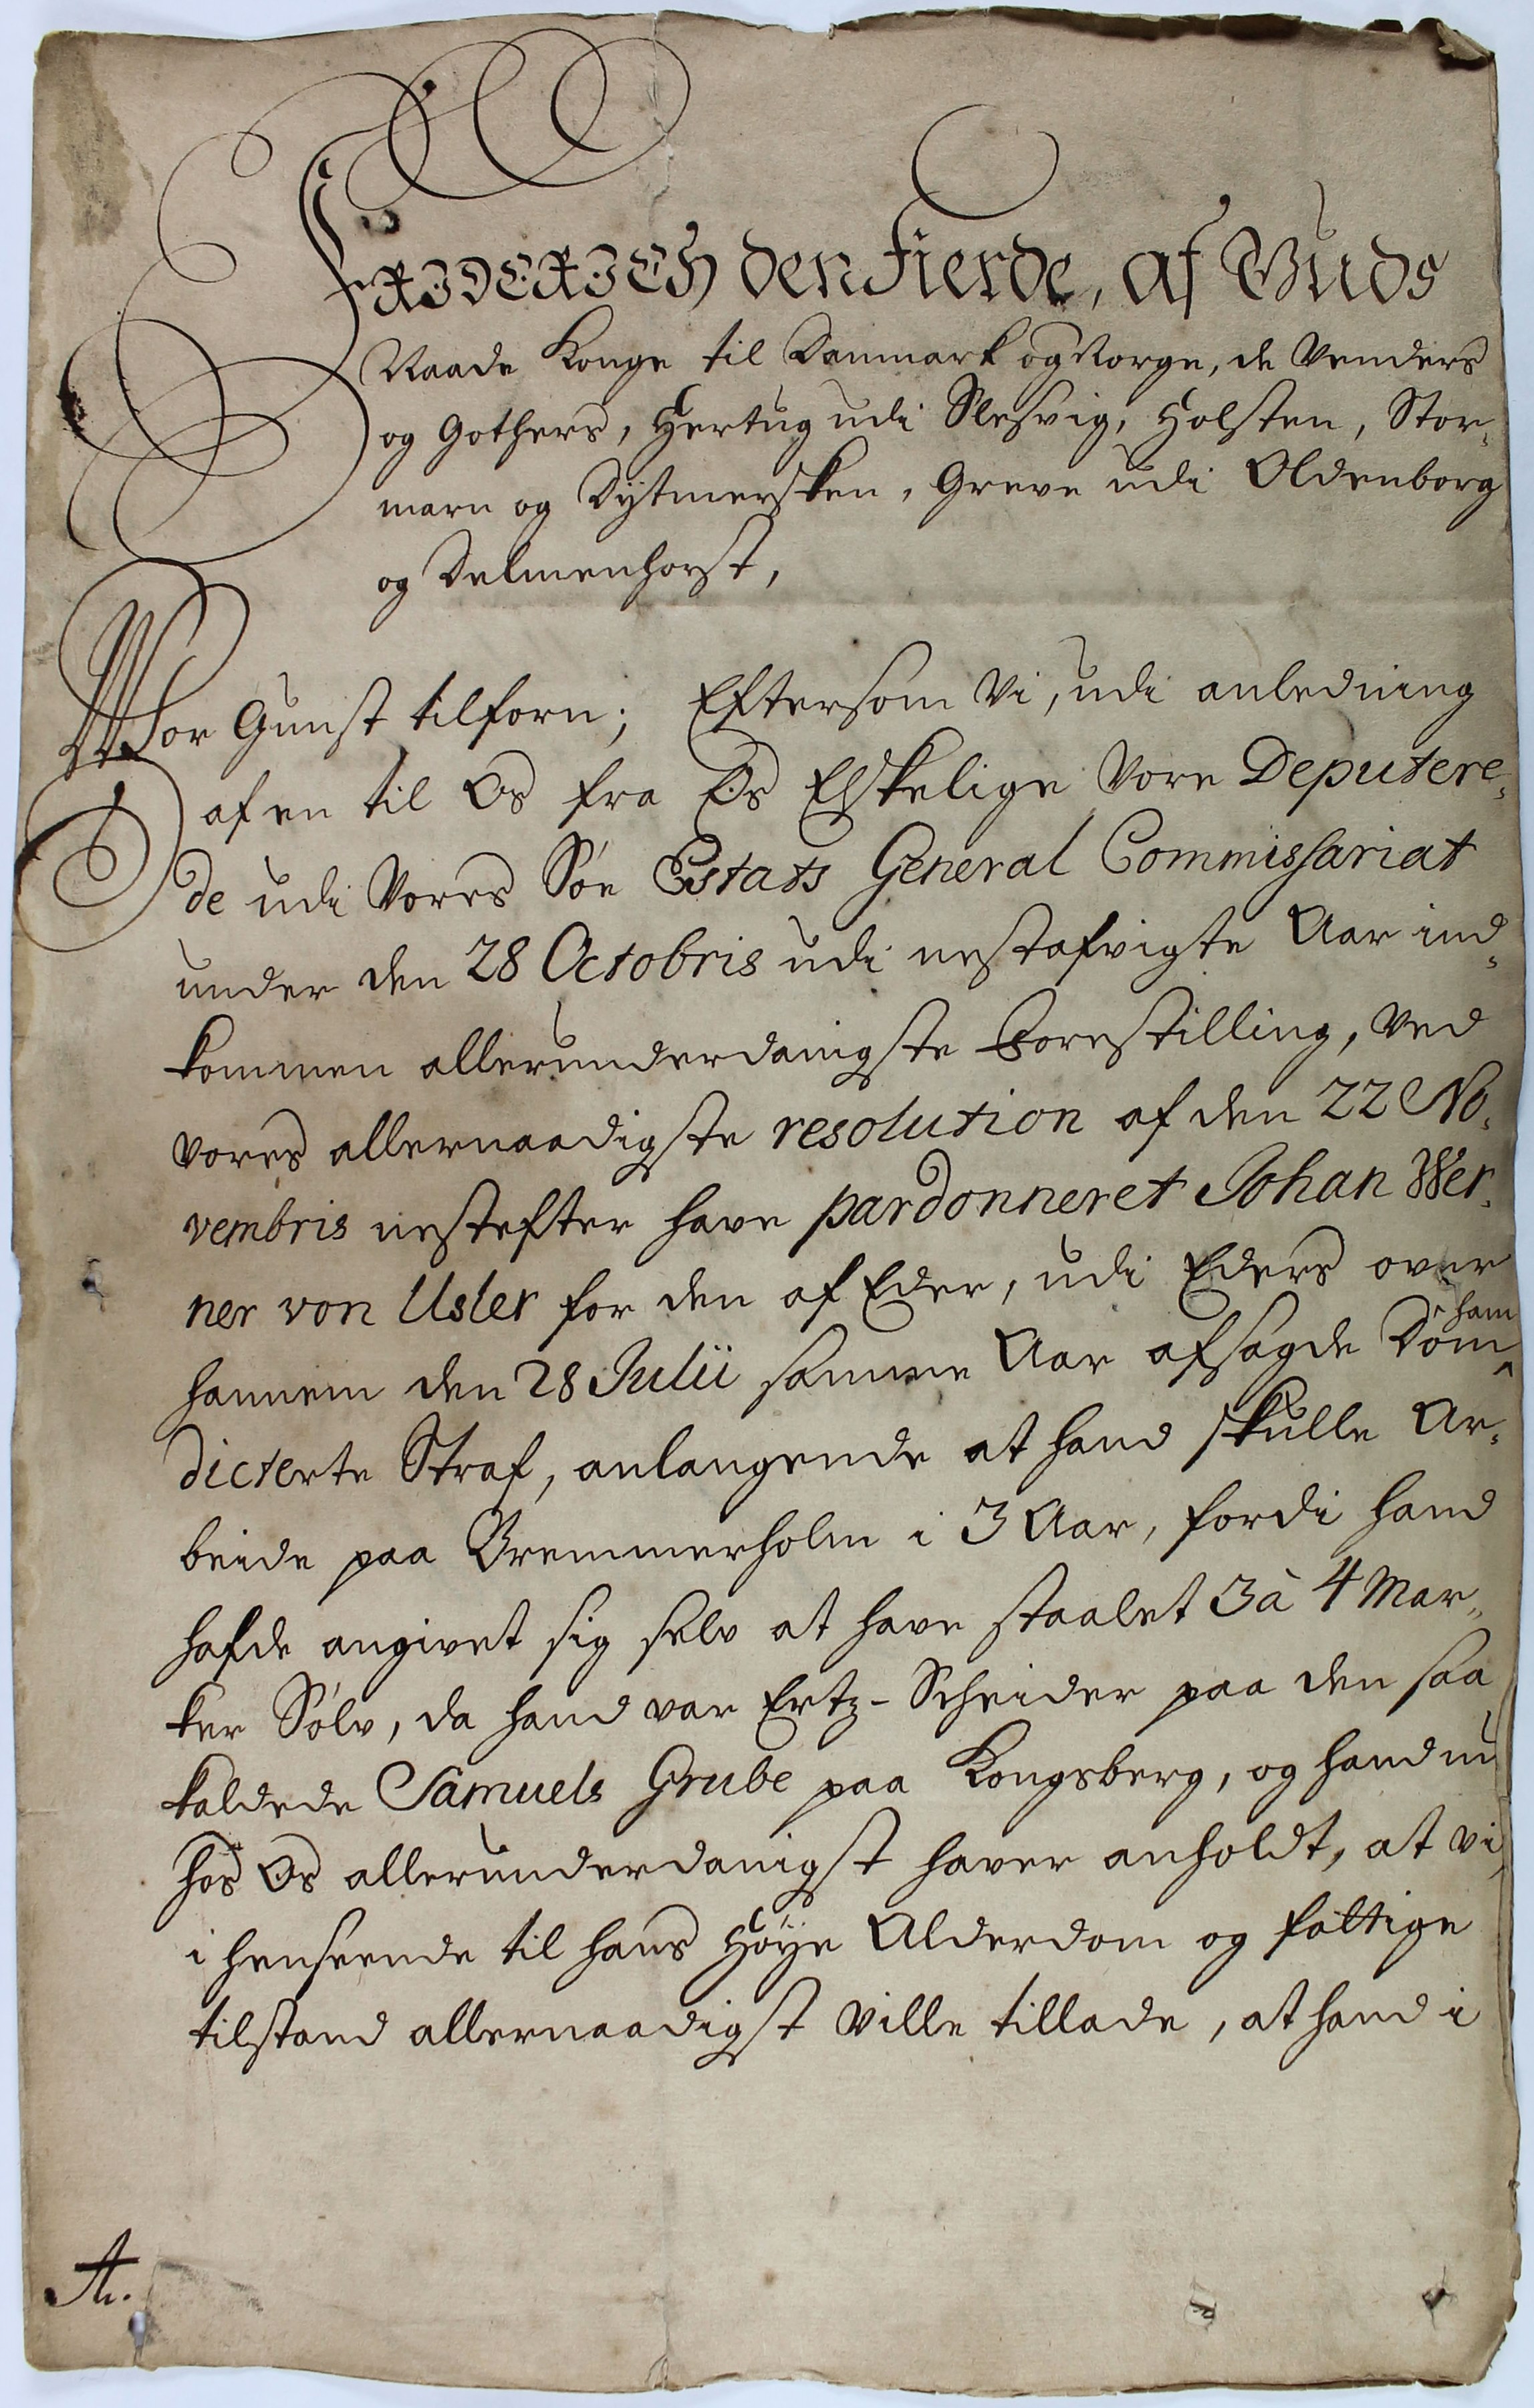 FRIDERICH den Fierde, af Guds
Naade Konge til Danmark og Norge, de Venders
og Gothers, Hertug udi Slesvig, Holsten, Stor-
marn og Dytmersken, Greve udi Oldenborg
og Delmenhorst,
Vor Gunst tilforn; Eftersom Vi, udi anledning
af en til Os fra Os Elskelige Vore Deputere-
de udi Vores Søe Estats General Commissariat
under den 28 Octobris udi nestafvigte Aar ind-
kommen allerunderdanigste Forestilling, ved
vores allernaadigste resolution af den 22 No-
vembris nestefter have pardonneret Johan Wer-
ner von Usler for den af Eder, udi Eders over
hannem den 28 Julii samme Aar afsagde Dom ham
dicterte Straf, anlangende at hand skulle Ar-
beide paa Bremmerholm i 3 Aar, fordi hand
hafde angivet sig selv at have staalet 3 à 4 Mar-
ker Sølv, da hand var Ertz-Scheider paa den saa
kaldede Samuels Grube paa Kongsberg, og hand nu
hos Os allerunderdanigst haver anholdt, at vi
i henseende til hans Høye Alderdom og fattige
tilstand allernaadigst ville tillade, at hand i